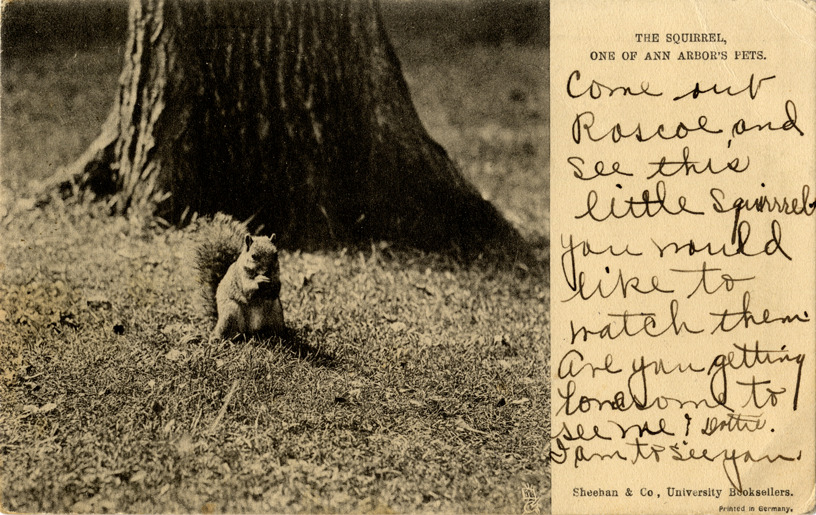 THE SQUIRREL,
ONE OF ANN ARBOR'S PETS.
Come out
Roscoe, and
see this
little Squirrel
you would
like to
watch them.
Are you getting
lonesome to
see me? Dottie.
I am to see you.
Sheehan & Co., University Booksellers.
Printed in Germany.